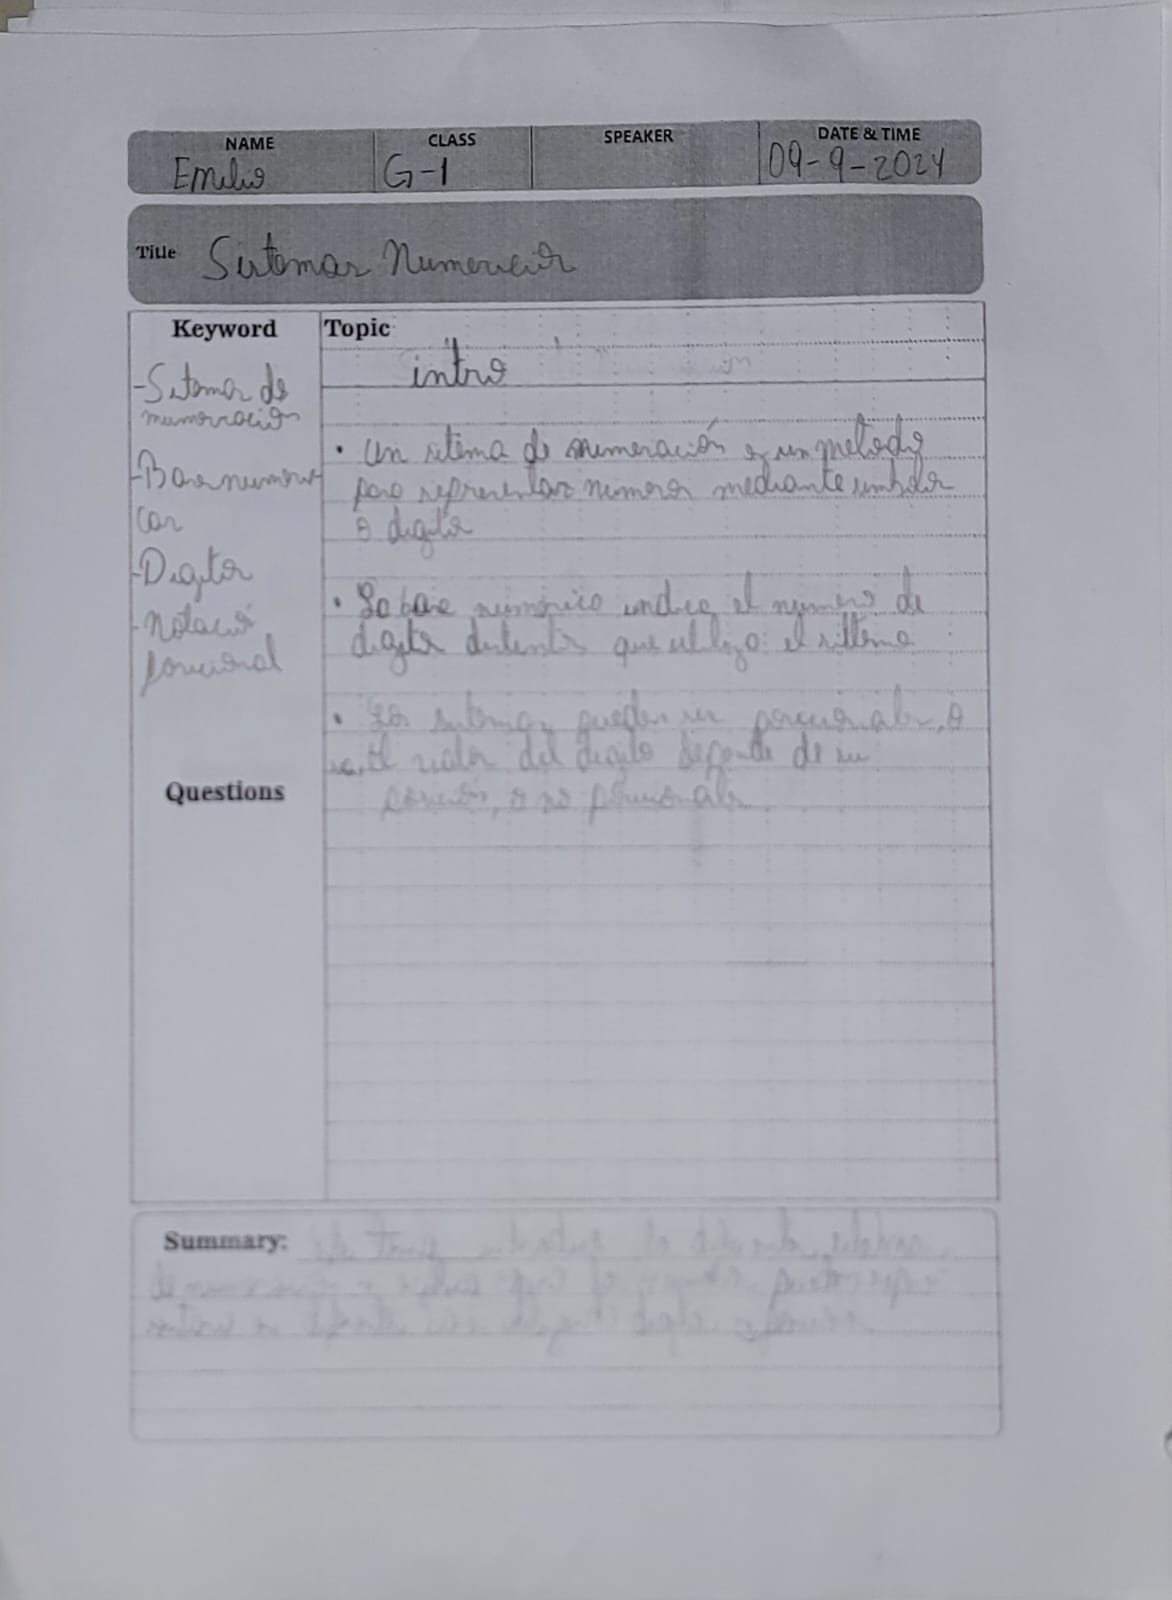 NAME
CLASS
SPEAKER
DATE & TIME
Emilio
G-1
09-9-2024
Title
Sistemas Numericos
Keyword
Topic
intro
-Sistemas de
numeracion
-Bases numeri
cas
-Digitos
-Notació
posicional
Questions
• Un sitema de numeración es un metodo
para representar numeros mediante simbolos
o digitos
• La base numerica indica el numero de
digitos distintos que utiliza el sistema
• Los sistemas pueden ser posicionales, o
el valor del digito depende de su
posición, o no posicionales
Summary: